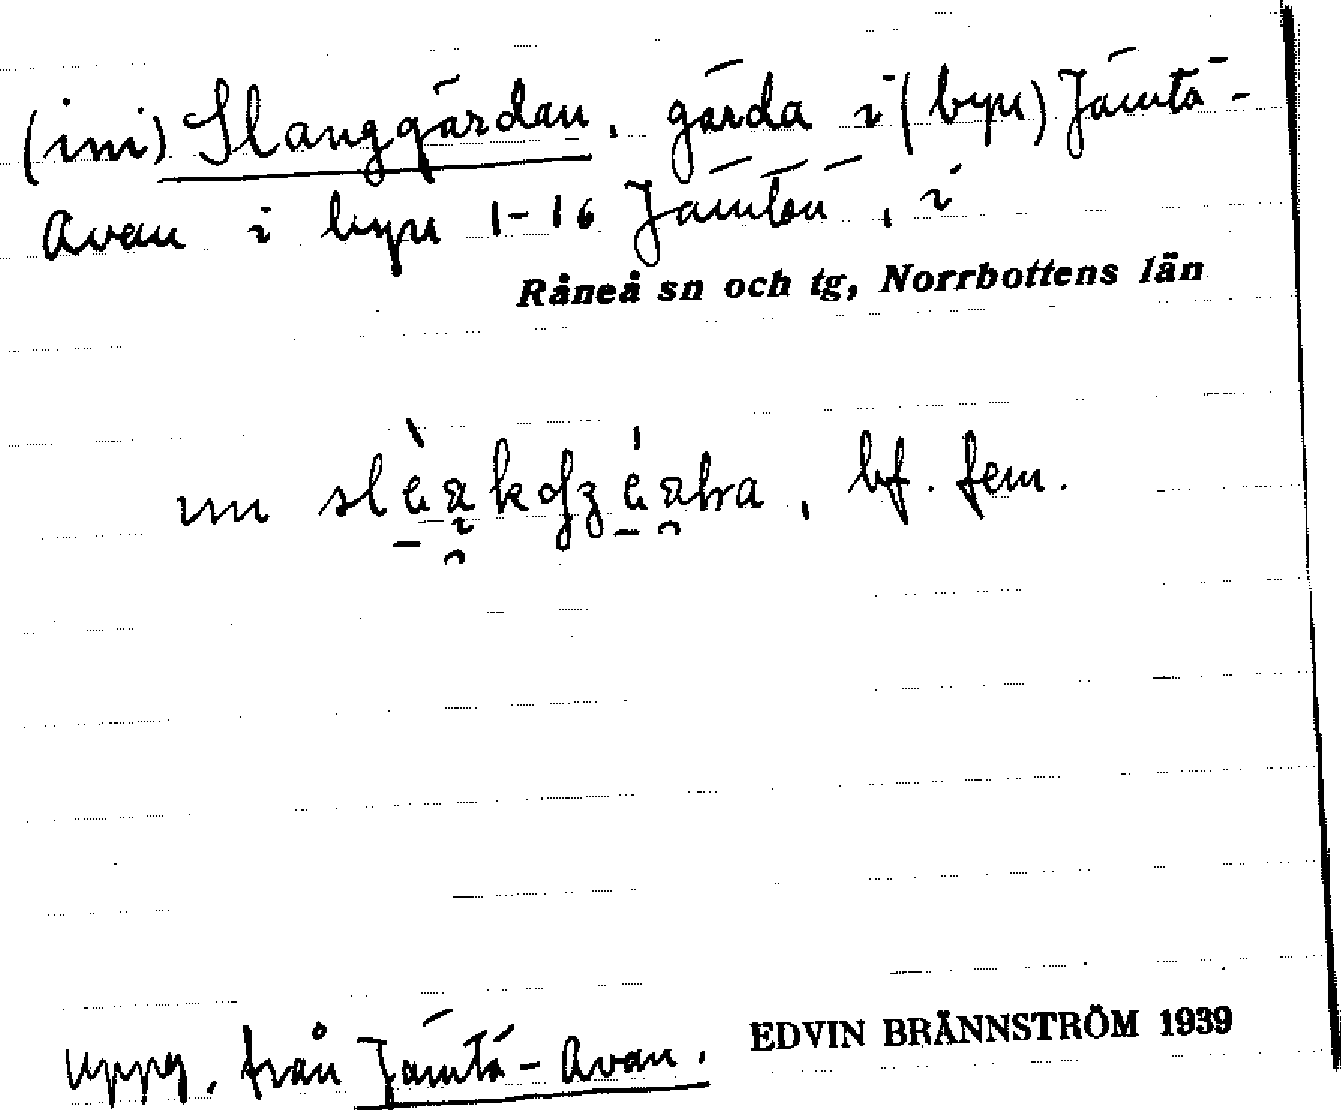 (ini) Slanggärdan, gärda i (byn) Jämtö-
Avan i byn 1-16 Jämtön, i
Råneå sn och tg, Norrbottens län
bf. fem.
Uppg. från Jämtö-Avan.
EDVIN BRÄNNSTRÖM 1939